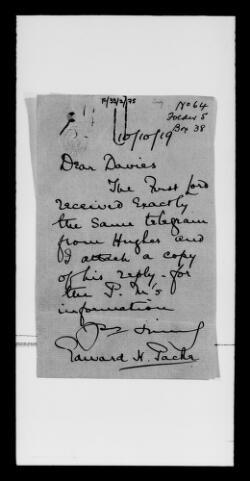 F/33/2/75
No 64
Folder 5
Box 38
10/10/19
Dear Davies
The First Lord
received exactly
the same telegram
from Hughes and
I attach a copy
of his reply - for
the P. M's
information
Edward H. Packe